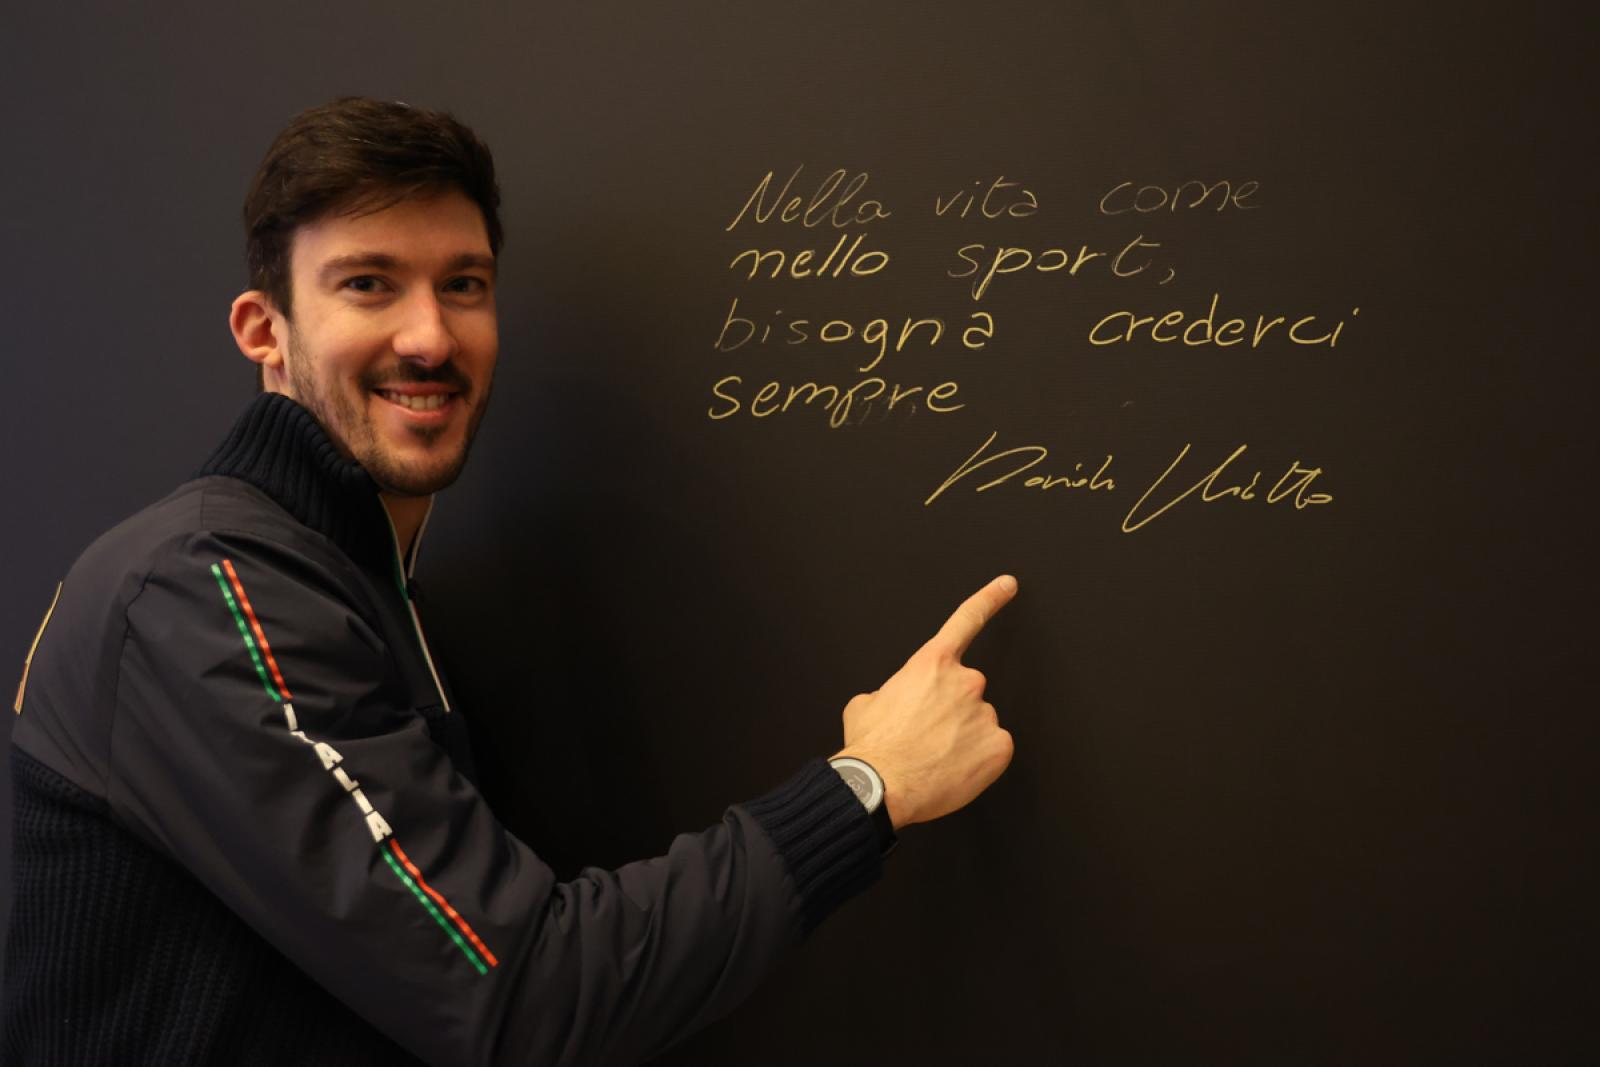 Nella vita come
nello sport,
bisogna crederci
sempre
ITALIA